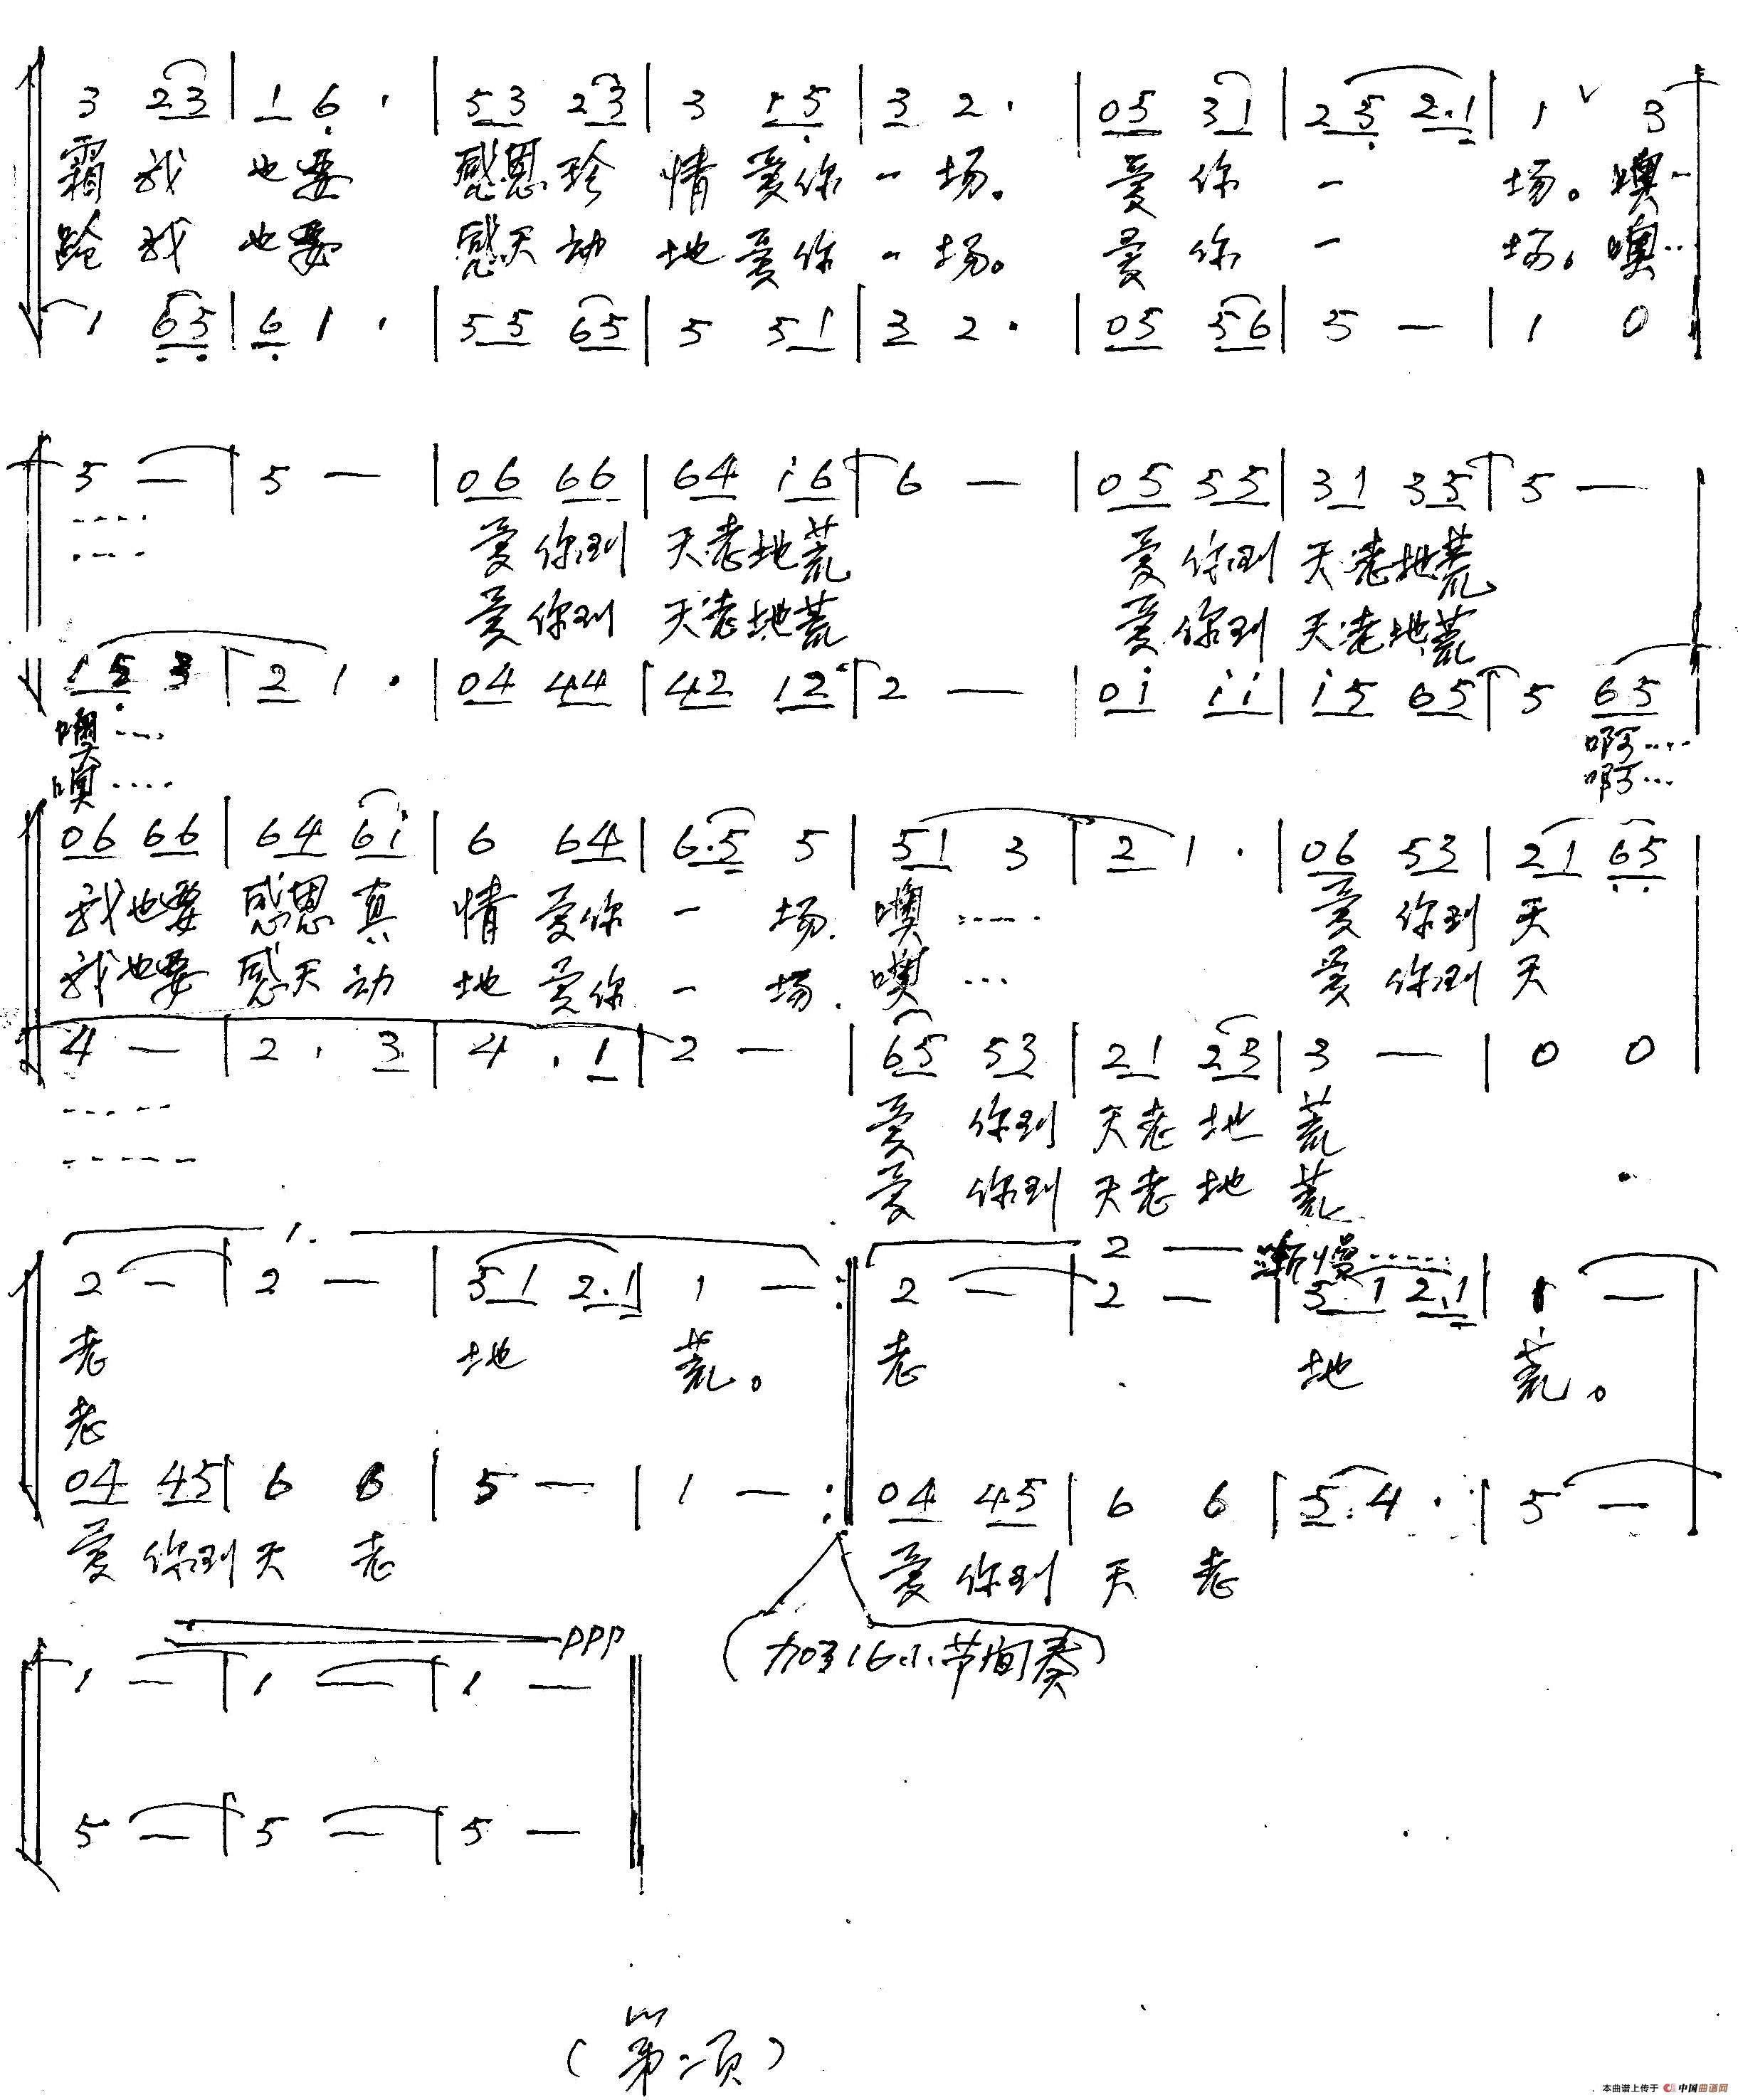 3 23 | 1 6 · | 53 23 | 3 5 | 3 2 · | 05 31 | 25 2·1 | 1 ∨ 3
霜 我 也要 感恩珍 情 爱你 一 场。 爱 你 一 场。噢…
跄 我 也要 感天动 地 爱你 一 场。 爱 你 一 场。噢…
1 65 | 6 1 · | 55 65 | 5 51 | 3 2 · | 05 56 | 5 — | 1 0
5 — | 5 — | 06 66 | 64 i6 | 6 — | 05 55 | 31 35 | 5 —
…… 爱你到 天老地荒 爱你到 天老地荒
…… 爱你到 天老地荒 爱你到 天老地荒
15 3 | 2 1 · | 04 44 | 42 12 | 2 — | 0i ii | i5 65 | 5 65
噢…… 啊……
噢…… 啊…
06 66 | 64 6i | 6 64 | 6·5 5 | 51 3 | 2 1 · | 06 53 | 21 65
我也要 感恩真 情 爱你 一 场. 噢…… 爱 你到 天
我也要 感天动 地 爱你 一 场. 噢… 爱 你到 天
4 — | 2 · 3 | 4 · 1 | 2 — | 65 53 | 21 23 | 3 — | 0 0
…… 爱 你到 天老 地 荒
…… 爱 你到 天老 地 荒
1. 2 渐慢……
2 — | 2 — | 51 2·1 | 1 — :‖ 2 — | 2 — | 51 2·1 | 1 —
老 地 荒。 老 地 荒。
老
04 45 | 6 6 | 5 — | 1 — :‖ 04 45 | 6 6 | 5 4 · | 5 —
爱 你到 天 老 爱 你到 天 老
ppp
1 — | 1 — | 1 — ‖ (加16小节间奏)
5 — | 5 — | 5 — ‖
(第二页)
本曲谱上传于 中国曲谱网